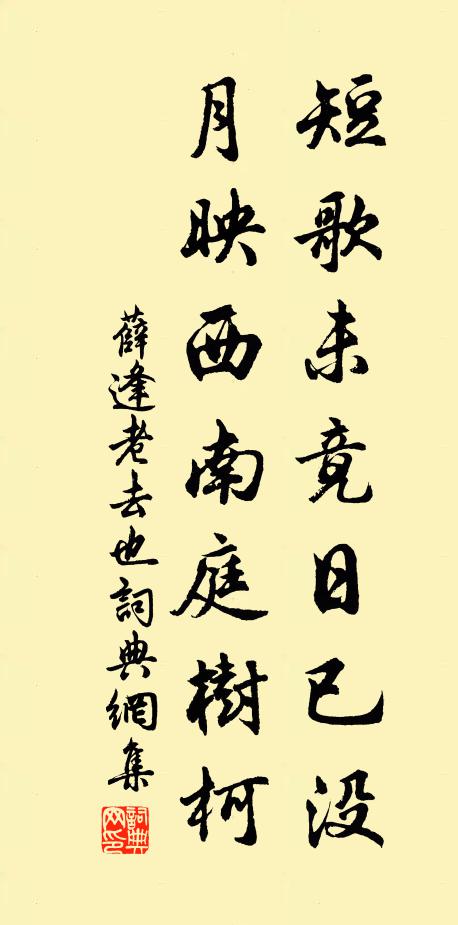 短歌未竟日已没
月映西南庭樹柯
薛逢老去也詞典網集
詞典网印